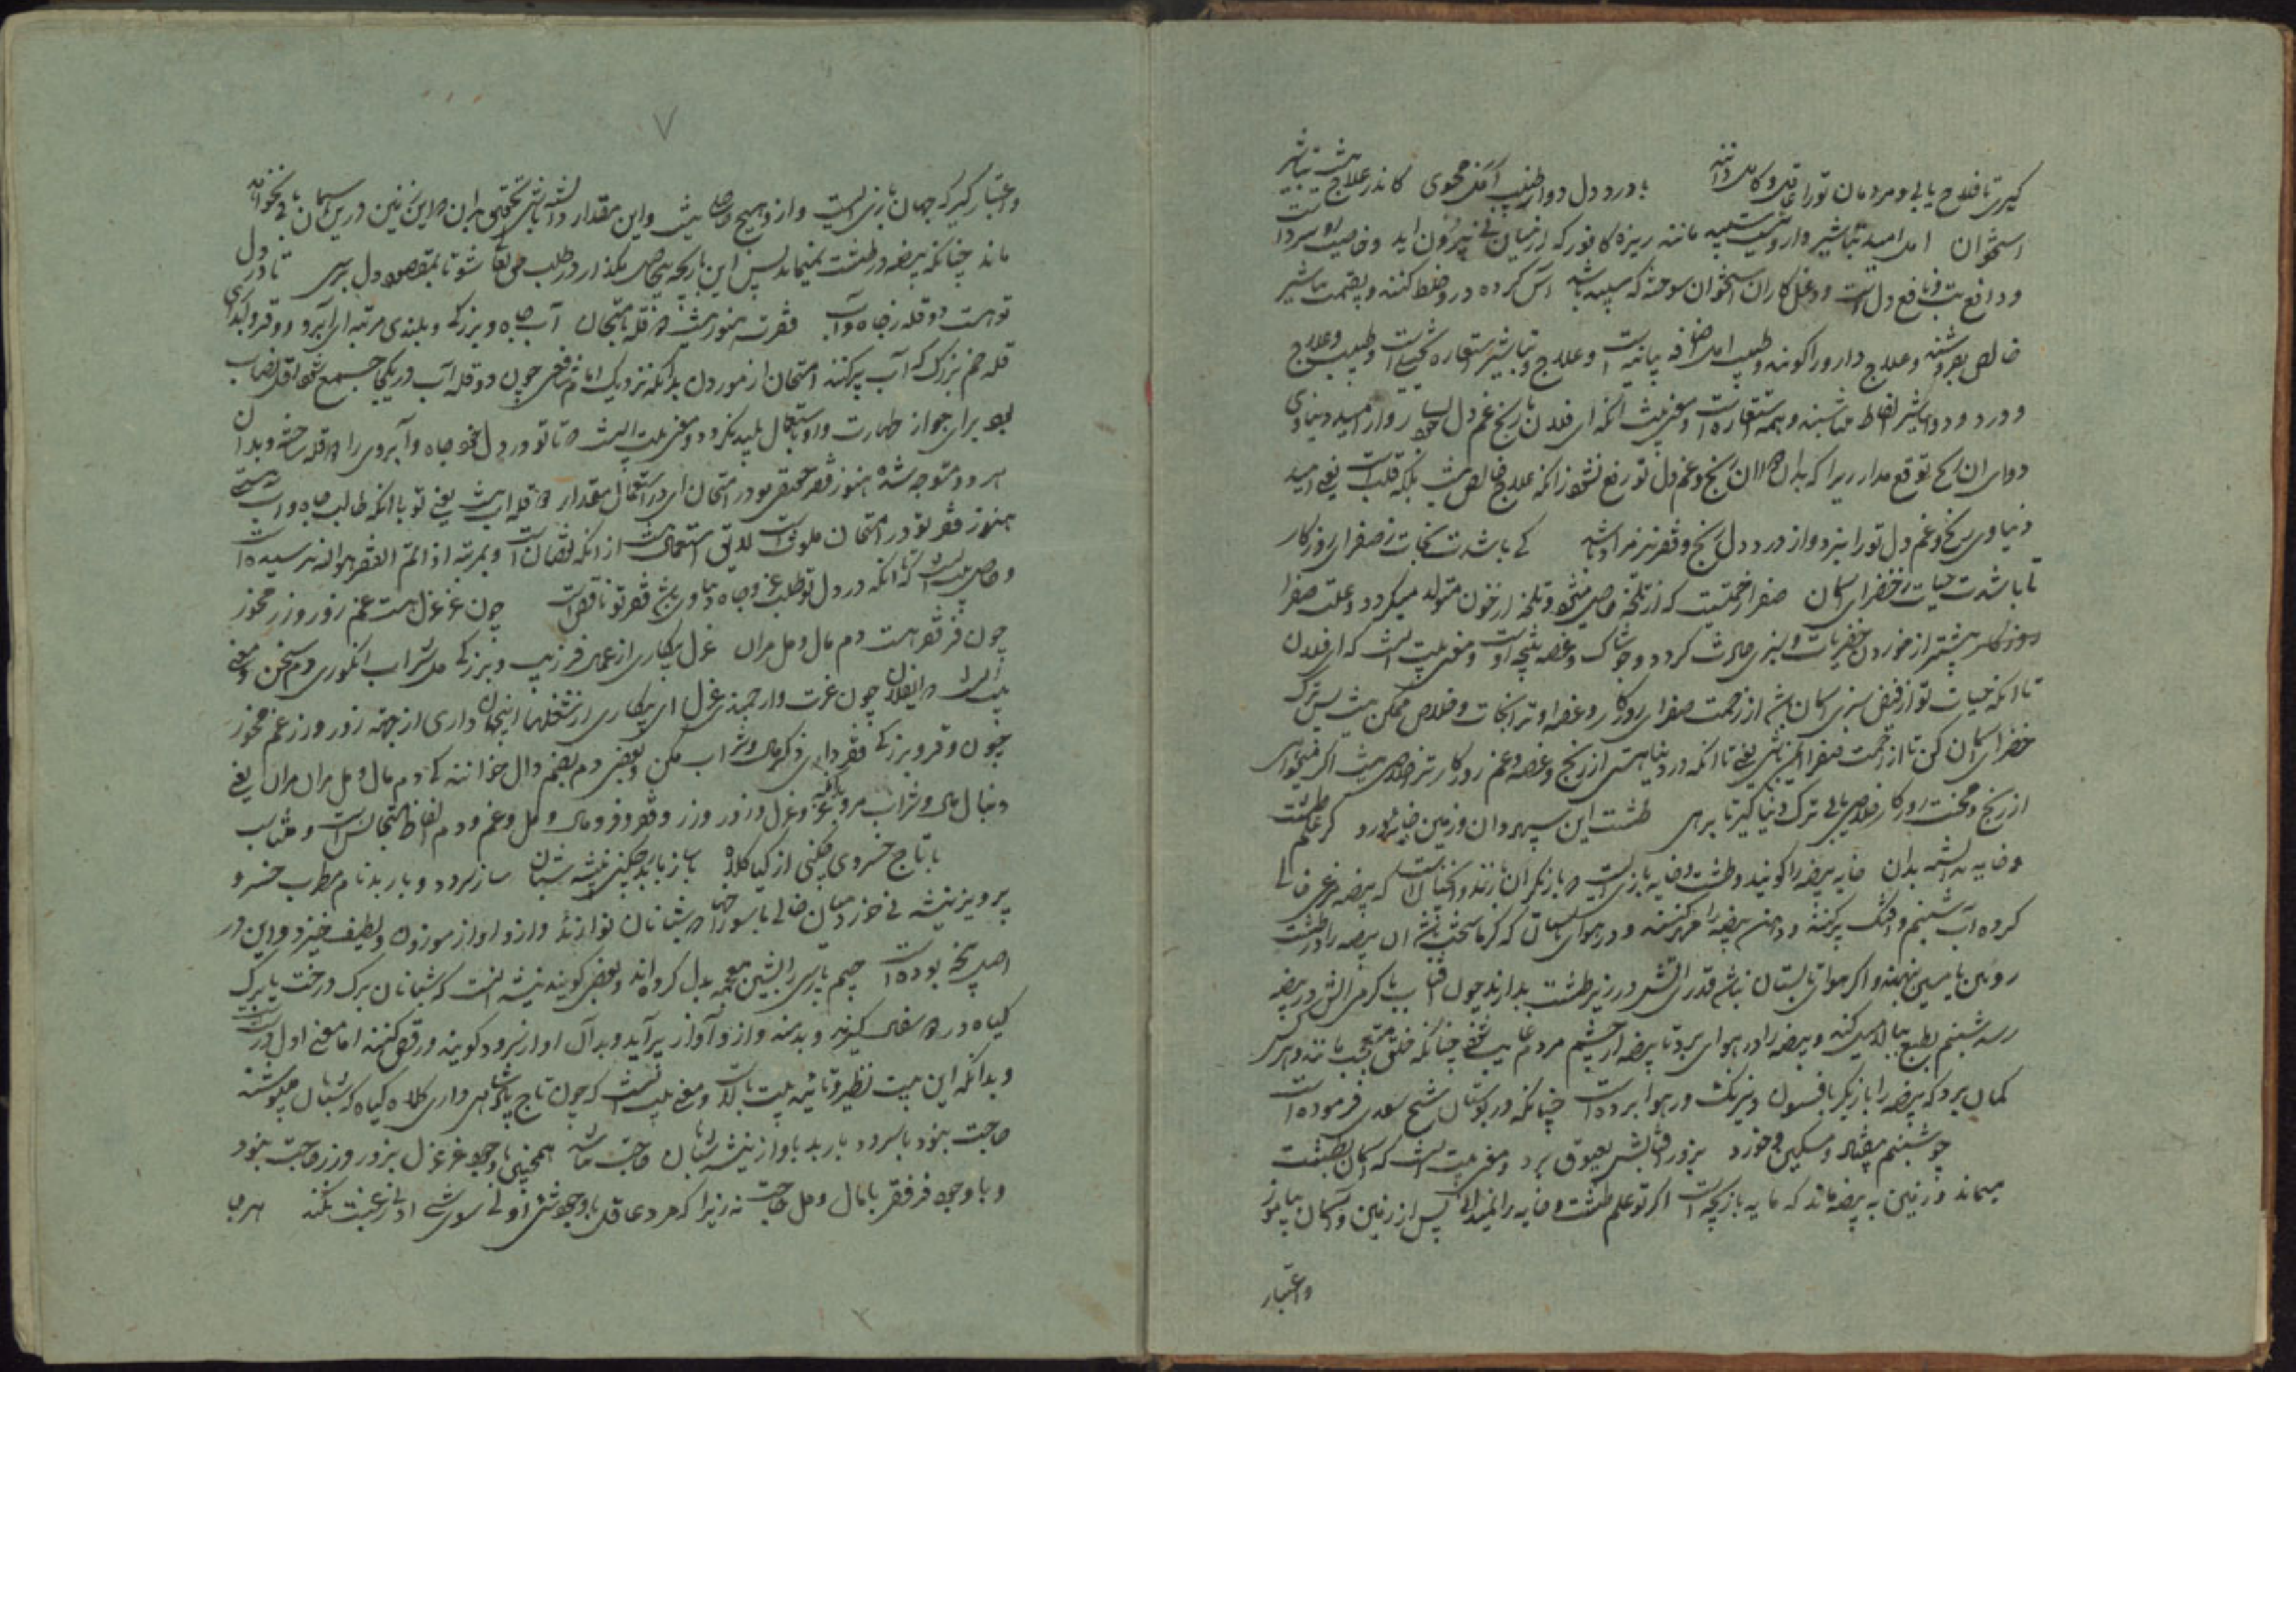 گیری تا فلاح یابی و مردمان تو را عاقل و کامل دانند با درد دل دوا ز طبیب امل مجوی کاندر علاج هست تباشیر
استخوان امل امید تباشیر دارویست سپید مانند ریزه کافور که از میان نی بیرون اید و خاصیت او سرد است
و دافع تب و نافع دل است و دغل کاران استخوان سوخته که سپید باشد آس کرده درو خلط کنند و بقیمت تباشیر
خالص بفروشند و علاج دارو را گویند و طبیب امل اضافه بیانیست و علاج و تباشیر استعاره
و درد و دوا تباشیر الفاظ متناسبند و همه استعارت است و معنی بیت آنکه ای فلان با رنج غم دل خود روا از امید دنیاوی
دوای ان رنج توقع مدار زیرا که بدان دوا ان رنج و غم دل تو رفع نشود زانکه علاج خالص نیست بلکه قلب است یعنی امید
دنیاوی رنج و غم دل تو را نبرد و از درد دل رنج و فقر نیز مر او باشد کی باشدت نجات ز صفرای روزگار
تا باشدت حیات ز خضرای آسمان صفرا زحمتیست که از تلخه حاصل میشود و تلخه از خون متولد میگردد و علت صفرا
بیشتر از خوردن خضریات و سبزی حادث گردد و خاشاک و غصه نتیجه اوست و معنی بیت اینست که ای فلان
تا انکه حیات تو از فیض سبزی آسمان باشد از زحمت صفرای روزگار و غصه او ترا نجات و خلاص ممکن نیست پس ترک
خضرای آسمان کن تا از زحمت صفرا ایمن باشی یعنی تا انکه در دنیا هستی از رنج و غصه و غم روزگار ترا خلاص نیست اگر میخواهی
از رنج و محنت روزگار خلاص یابی ترک دنیا گیر تا برهی طشت است این سپهر و ان زمین خایه درو گر علم طشت
و خایه ندانسته بدان خایه بیضه را گویند و طشت و خایه بازیست که بازیگران بازند و آنچنانست که بیضه مرغی خالی
کرده آب شبنم و اشک پر کنند و دهن بیضه را مهر کنند و در هوای تابستان که گرما سخت باشد ان بیضه را در طشت
رویین یا مسین نهند و اگر هوای تابستان نباشد قدری اتش در زیر طشت بدارند چون آفتاب یا گرمی اتش در بیضه
رسد شبنم بطبع بالا میل کند و بیضه را در هوای برد تا بیضه از چشم مردم غایب شود چنانکه خلق متعجب باشند و هرکس
گمان برد که بیضه را بازیگر بافسون و نیرنگ در هوا برده است چنانکه در بوستان شیخ سعدی فرموده است
چو شبنم بیفتاد مسکین و خورد بزور افتابش بعیوق برد و معنی بیت اینست که آسمان بطشت
میماند و زمین به بیضه ماند که مایه بازیچه است اگر تو علم طشت و خایه را نمیدانی پس از زمین و آسمان بیاموز
و اعتبار
۷
و اعتبار گیر که جهان بازیست و ازو هیچ حاصل نیست و این مقدار دانسته باش بتحقیق بدان که این زمین درین آسمان باقی نخواهد
ماند چنانکه بیضه در طشت نمیماند پس این بازیچه بیحاصل بگذار و در طلب حق تعالی شو تا بمقصود دل برسی تا در دل
توهست دو قله ز جاه و آب فقرت هنوز نیست دو قله بامتحان آب جاه و بزرگی و بلندی مرتبه ابرو آبرو و وقر و
قله خم بزرگ که آب پر کنند امتحان ازمودن بدانکه نزدیک امام شافعی چون دو قله آب در یکجا جمع شود اقل نصاب
بود برای جواز طهارت و او باستعمال پلید نگردد و معنی بیت اینست که تا تو در دل خود جاه و آبروی را دو قله ساخته و بدان
هر دو متوجه شده هنوز فقر حقیقی تو در امتحان ای در استعمال مقدار دو قله اب نیست یعنی تو با انکه طالب جاه و آب هستی
هنوز فقر تو در امتحان ملوث است لایق استعمال نیست از انکه نقصان است و بمرتبه اذا تم الفقر هو الله نرسیده است
و حاصل بیت آنست که تا انکه در دل تو طلب عز و جاه دنیاوی هست فقر تو ناقص است چون عز عزل هست غم زور و زر مخور
چون فر فقر هست دم مال و مل مران عزل بیکاری از عمل فر زیب و بزرگی مل شراب انگوری دم سخن و معنی
بیت انست که ایفلان چون عزت و ارجمندی عزل ای بیکاری از شغلها اینجهان داری از جهت زور و زر غم مخور
چون وقر و بزرگی فقر داری ذکر مال و شراب مکن و بعضی دم بضم دال خوانند که دم مال و مل مران یعنی
دنبال مال و شراب مرو باز غم و عزل و زور و زر و فقر و فر و مال و مل و غم و دم الفاظ تجانس است و متناسب
با تاج خسروی چکنی از گیا کلاه با ساز باربد چکنی نیشه شبان ساز سرود و باربد نام مطرب خسرو
پرویز نیشه نی خرد میان خالی با سوراخها که شبانان نوازند و ازو اواز موزون و لطیف خیزد و این در
اصل نیچه بوده است چیم پارسی را بشین معجمه بدل کرده اند و بعضی گویند نیشه انست که شبانان برگ درخت یا برگ
گیاه در گیرند و بدمند و ازو آواز برآید و بدان اواز سرود گویند و رقص کنند اما معنی اول درست
و بدانکه این بیت نظیر و تائید بیت بالاست و معنی بیت انست که چون تاج پادشاهی داری کلاه گیاه که شبان میپوشند
حاجت نبود با سرود باربد باواز نیشه شبان حاجت نباشد همچنین با وجود عز عزل بزور و زر حاجت نبود
و با وجود فر فقر با مال و مل حاجت نه زیرا که مرد عاقل با وجود شئ اولی سوی شئ ادنی رغبت نکند